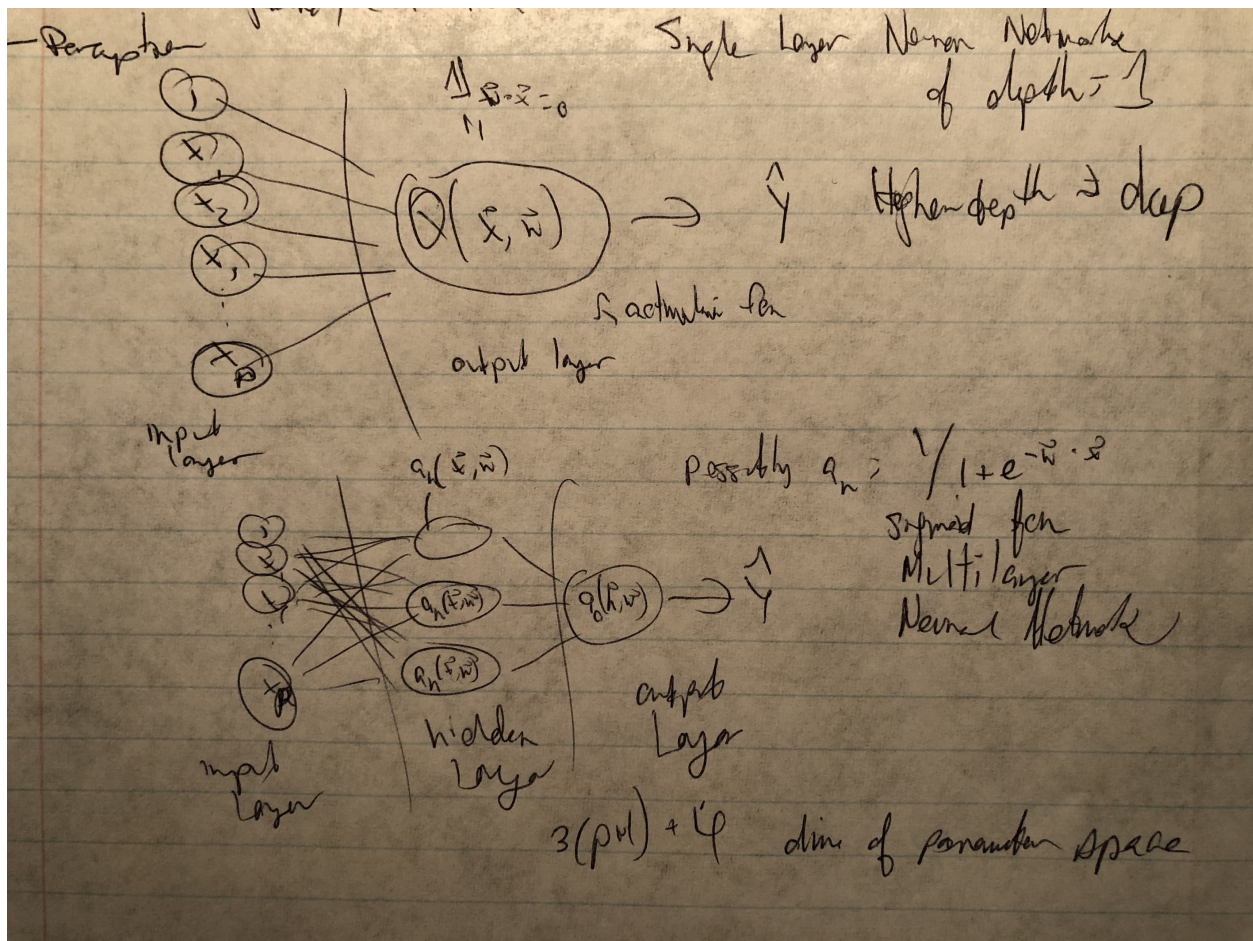 - Perceptron
Single Layer Neuron Network
of depth = 1
1
x
x₂
x₃
⋮
x_p
input
Layer
𝟙 w⃗·x⃗ = 0
(x⃗, w⃗)
→ Ŷ
Higher depth ⇒ deep
↖ activation fcn
output layer
a_h(x⃗, w⃗)
possibly a_h = 1/1+e^{-w⃗·x⃗}
sigmoid fcn
Multilayer
Neural Network
1
⋮
x_p
a_h(x⃗,w⃗)
a_h(x⃗,w⃗)
a_o(h⃗,w⃗)
→ Ŷ
input
Layer
hidden
Layer
output
Layer
3(p+1) + 4 dim of parameter space